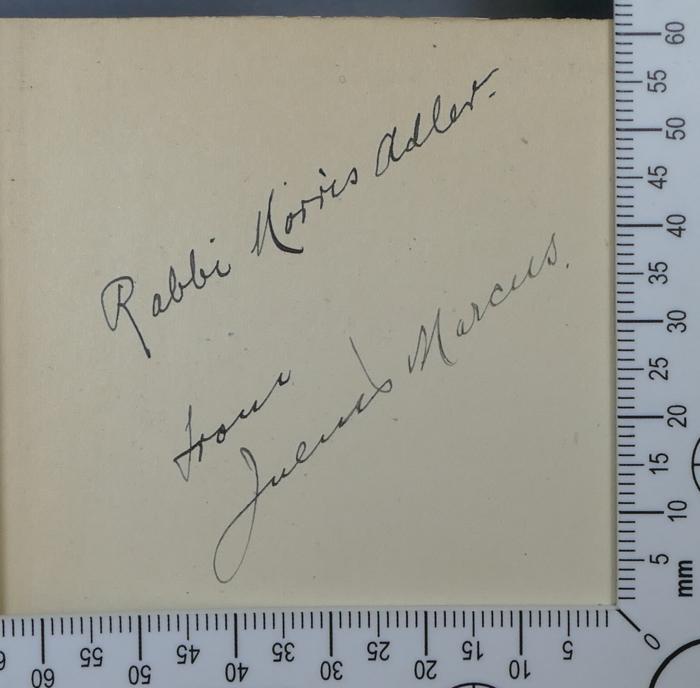 Rabbi Morris Adler.
from
Marcus.
60
55
50
45
40
35
30
25
20
15
10
5
mm
0
60 55 50 45 40 35 30 25 20 15 10 5